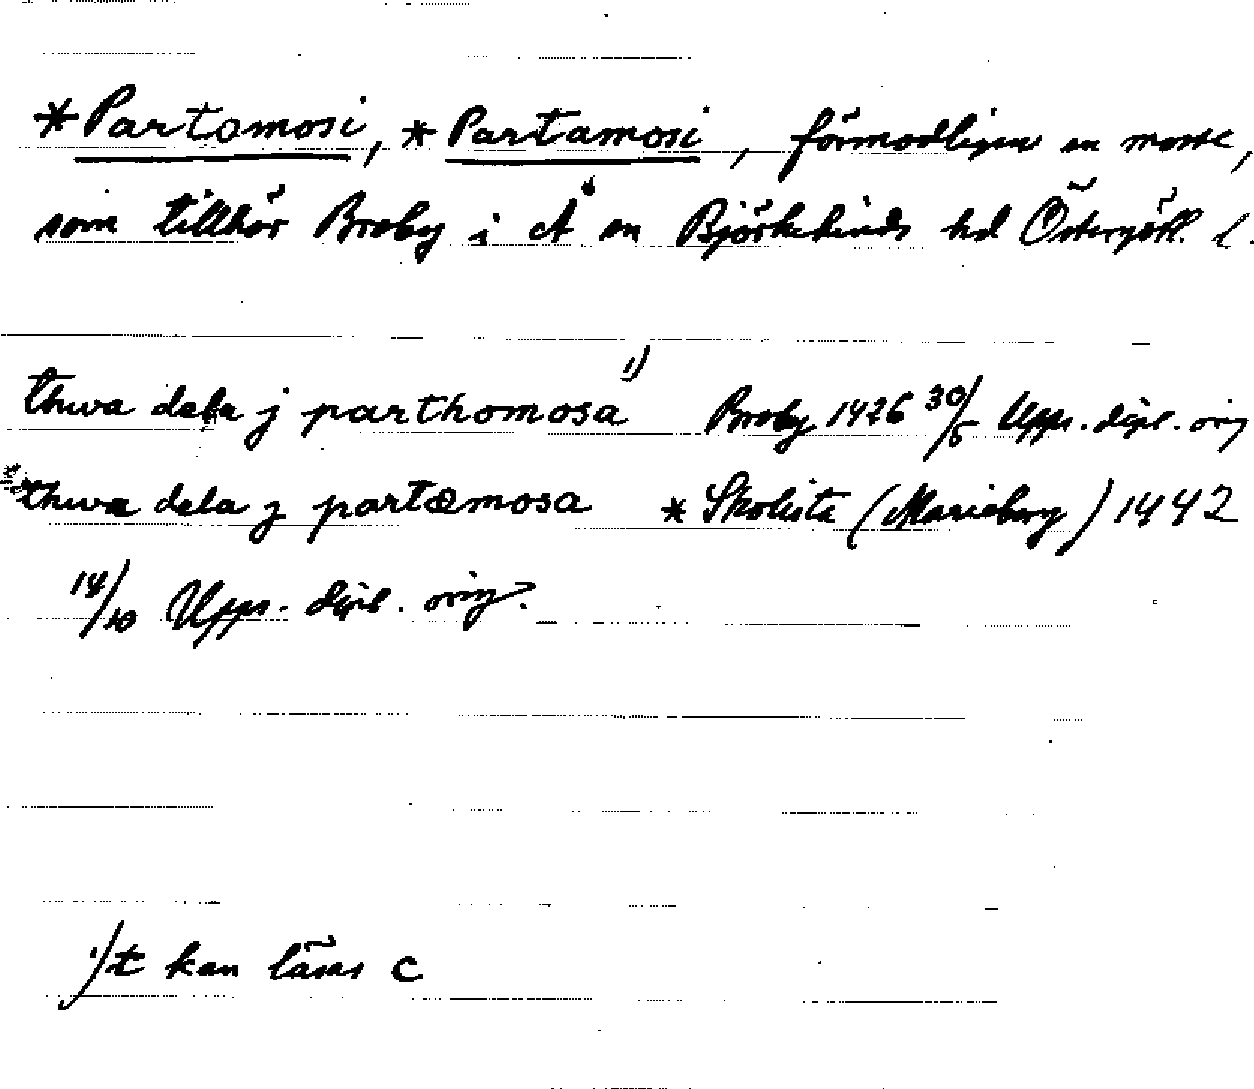 *Partomosi, *Partamosi, förmodligen en mosse,
som tillhör Broby i st en Björkekinds hd Östergötl. l.
thwa dela j parthomosa 1) Broby 1426 30/5 Upps. dipl. orig
thwa dela j partæmosa * Skolista (Marieborg) 1442
14/10 Upps. dipl. orig.
1) t kan läsas c